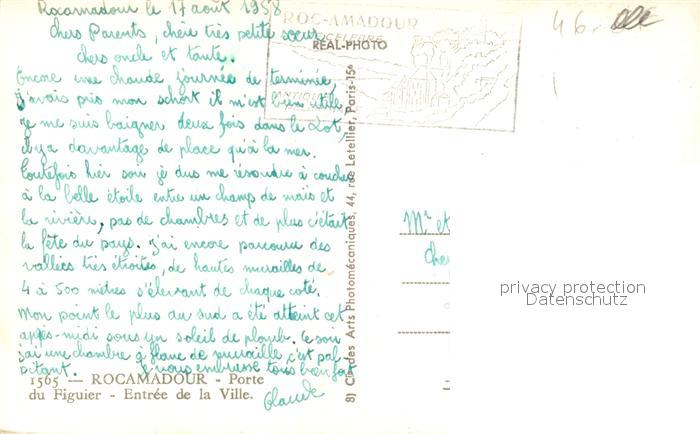 Rocamadour le 17 août 1958
Chers Parents, chère très petite sœur,
chers oncle et tante.
Encore une chaude journée de terminée,
j'avais pris mon schort il m'est bien utile
je me suis baigner deux fois dans le Lot
il y a davantage de place qu'à la mer.
Toutefois hier soir je dus me résoudre à coucher
à la belle étoile entre un champ de maïs et
la rivière, pas de chambres et de plus c'était
la fête du pays. J'ai encore parcouru des
vallées très étroites, de hautes murailles de
4 à 500 mètres s'élevant de chaque coté.
Mon point le plus du sud a été atteint cet
après-midi sous un soleil de plomb. Ce soir
j'ai une chambre à flanc de muraille c'est pal
pitant. Je vous embrasse tous bien fort
Claude
1565 — ROCAMADOUR - Porte
du Figuier - Entrée de la Ville.
ROC-AMADOUR
REAL-PHOTO
46.
8) Cie des Arts Photomécaniques, 44, rue Letellier, Paris-15e
Mr et
Cher
privacy protection
Datenschutz